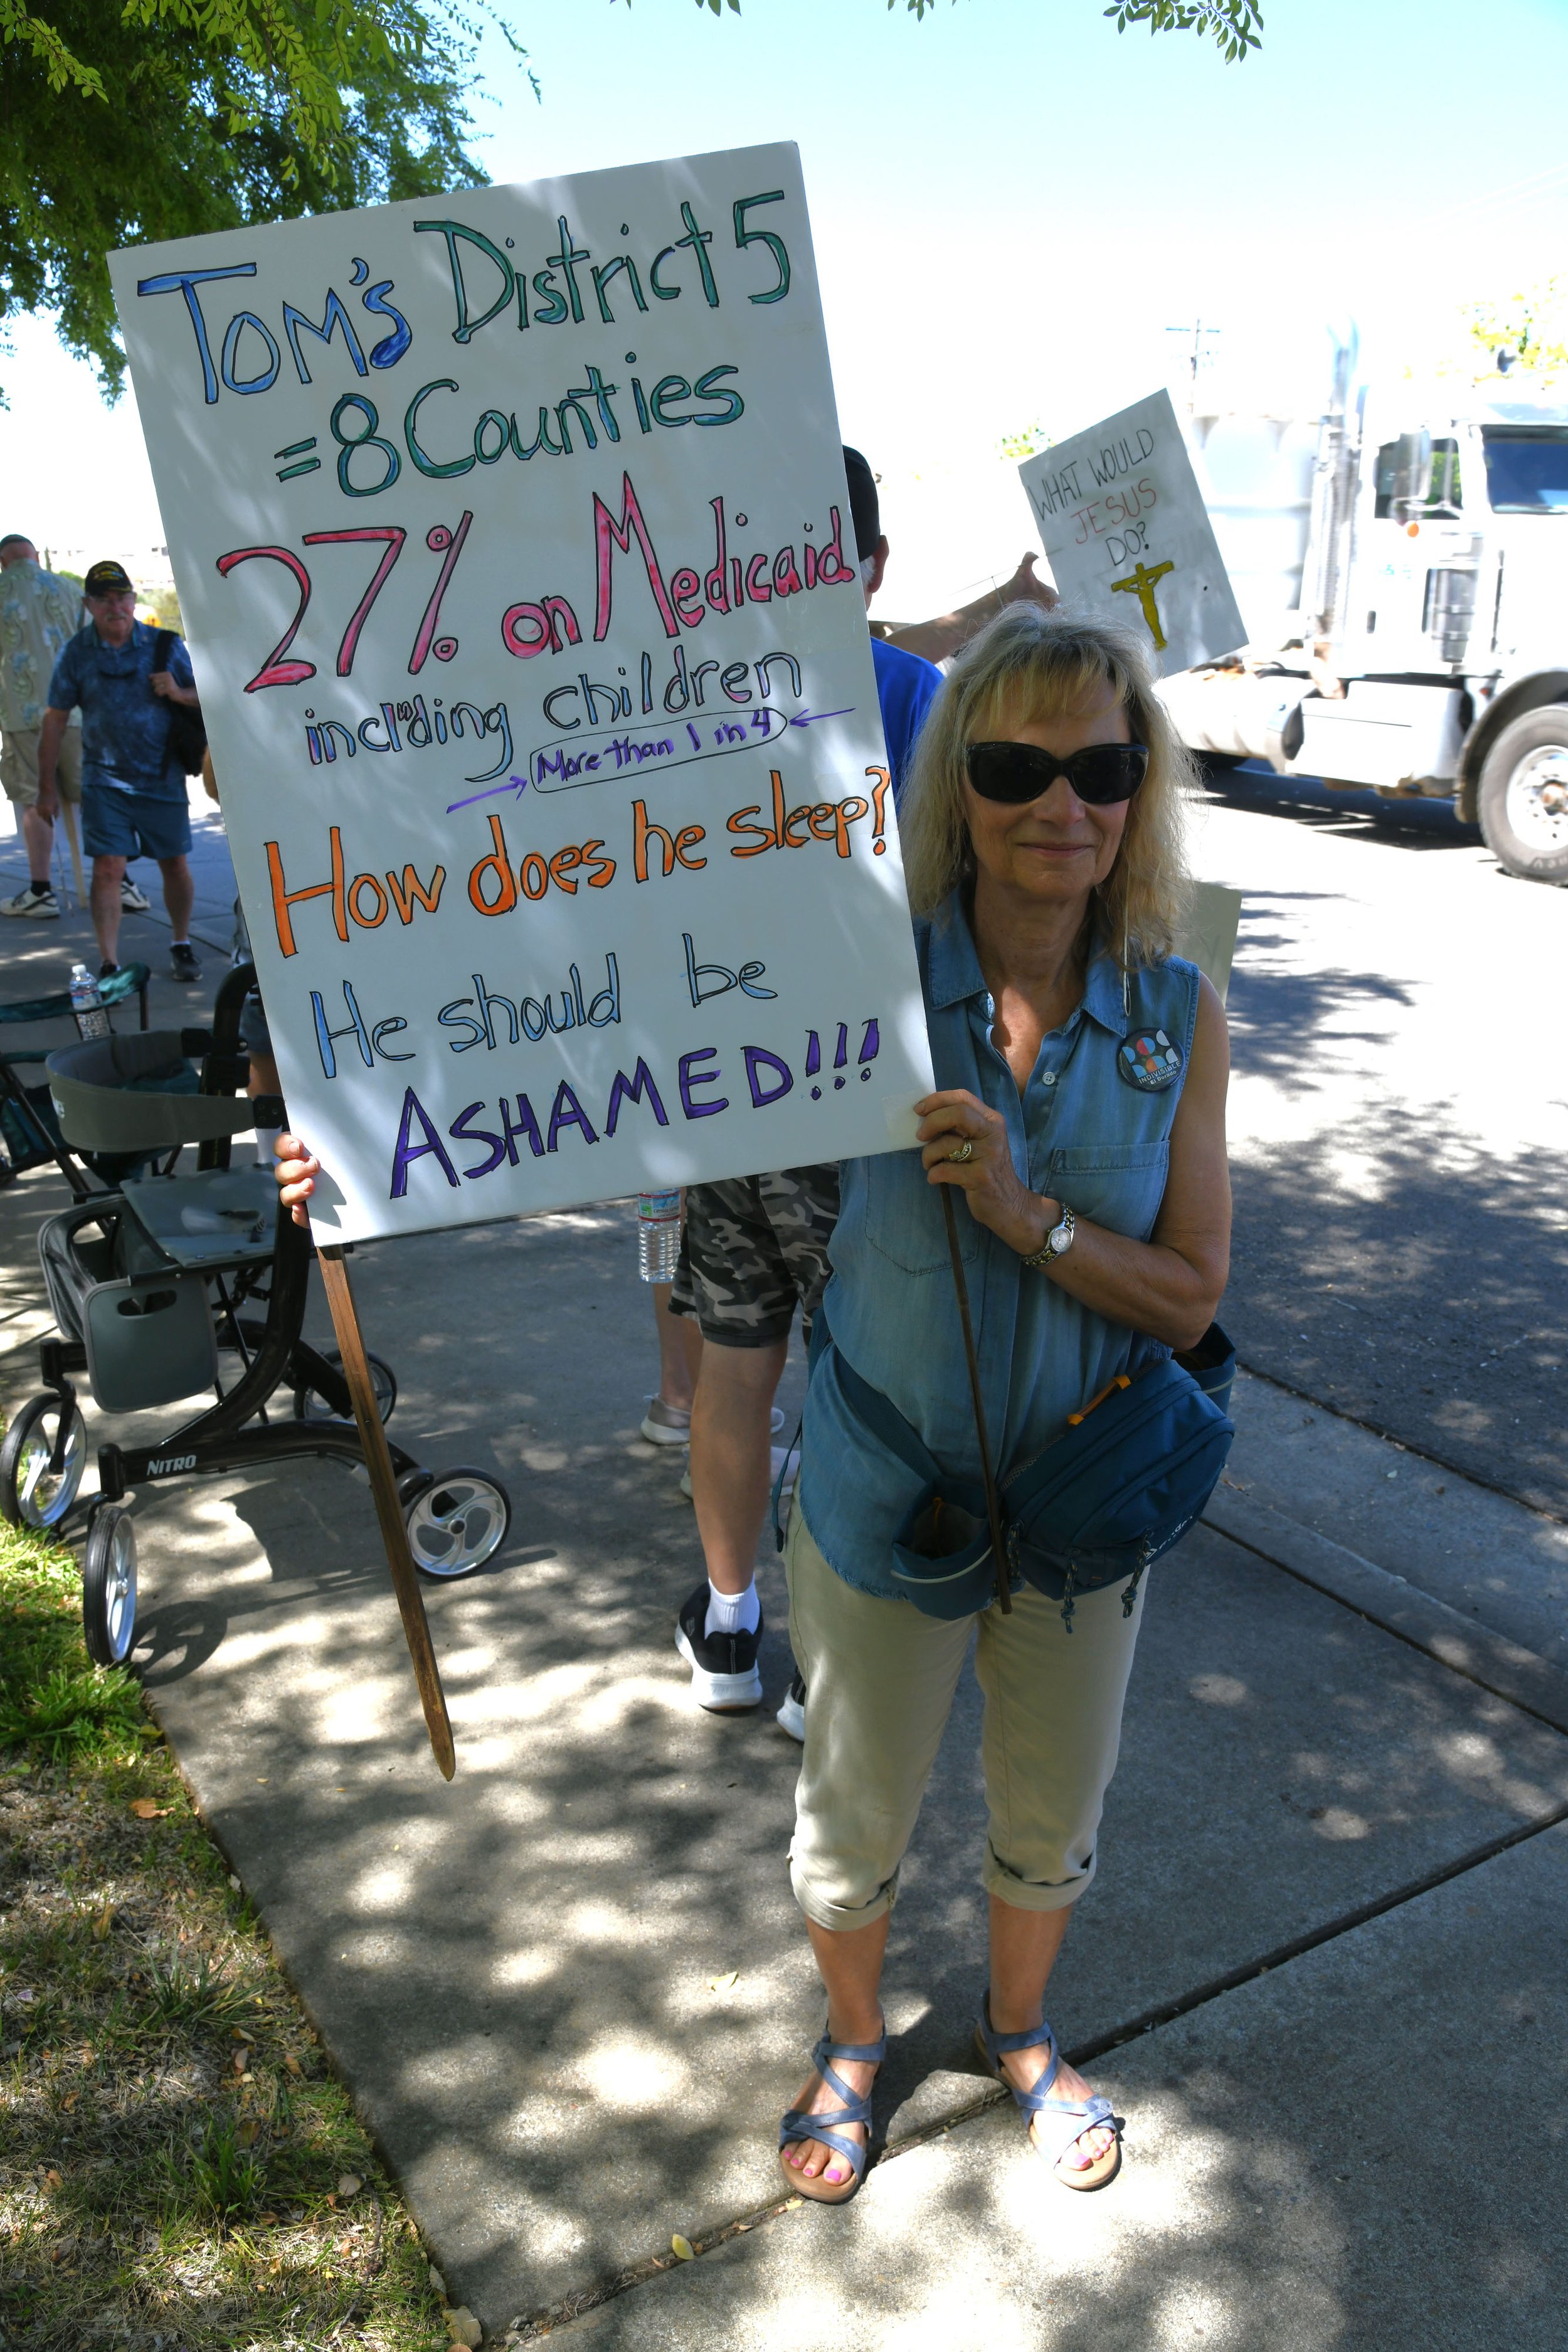 TOM'S District 5
=8 Counties
27% on Medicaid
including children
More than 1 in 4
How does he sleep?
He should be
ASHAMED!!!
WHAT WOULD
JESUS
DO?
INDIVISIBLE
El Dorado
NITRO